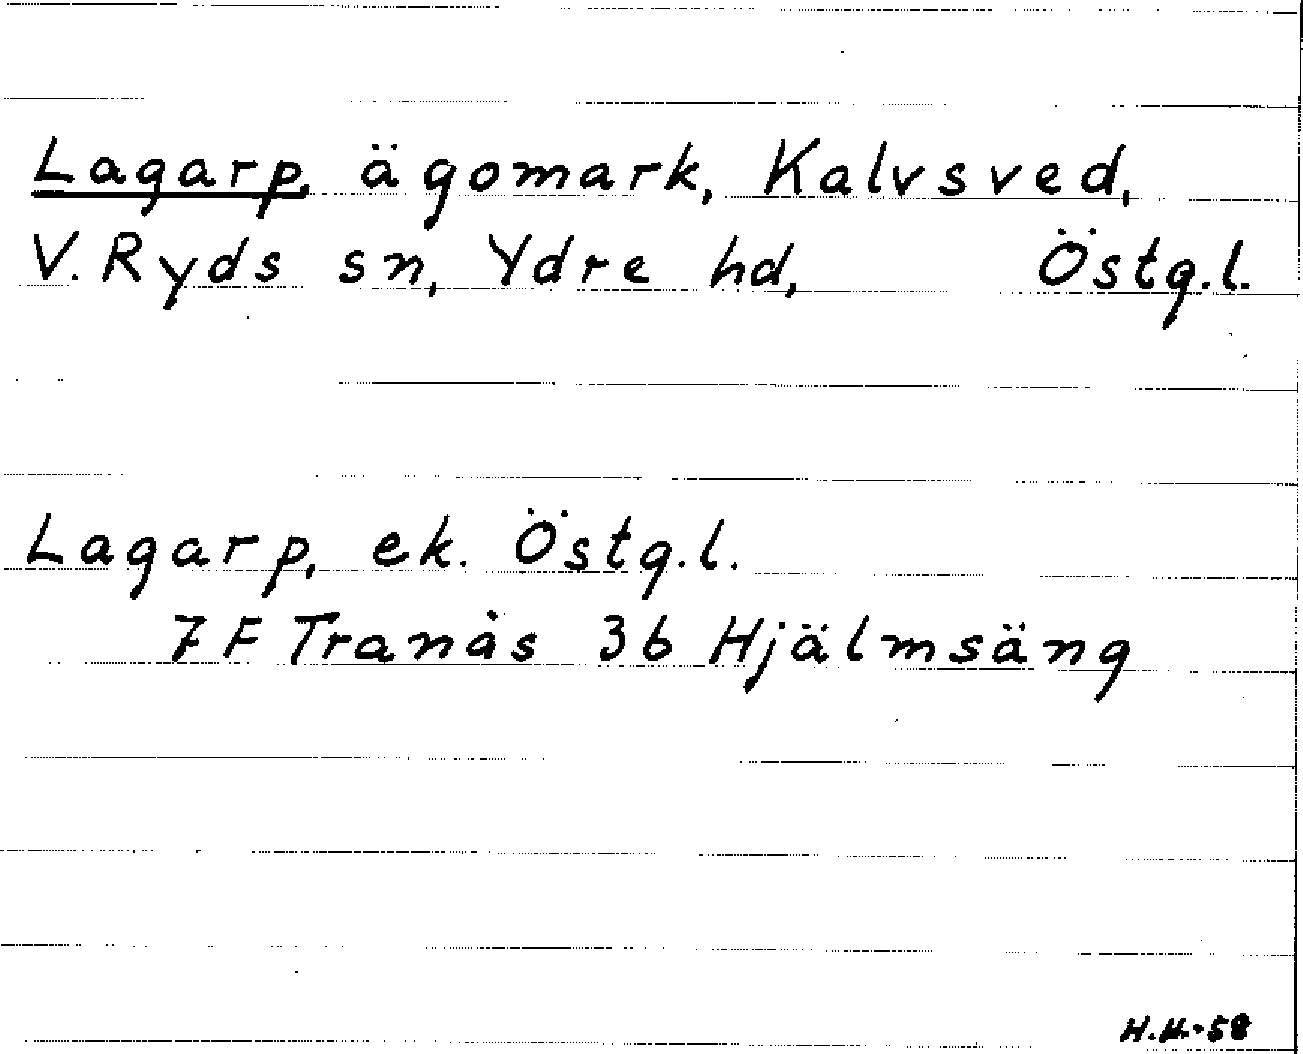 Lagarp, ägomark, Kalvsved,
V. Ryds sn, Ydre hd, Östg.l.
Lagarp, ek. Östg.l.
7 F Tranås 3b Hjälmsäng